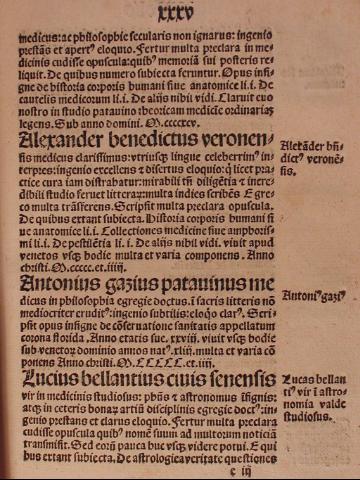 xxxv
medicus: ac philosophie secularis non ignarus: ingenio
prestãs et aperto eloquio. Fertur multa preclara in me-
dicinis cudisse opuscula: quibꝰ memoriã sui posteris re-
liquit. De quibus numero subiecta feruntur. Opus insi-
gne de historia corporis humani siue anatomice li. i. De
cautelis medicorum li. i. De alijs nihil vidi. Claruit euo
nostro in studio patauino theoricam medicĩe ordinariaʒ
legens. Sub anno domini. M.ccccxcv.
Alexander benedictus veronen-
sis medicus clarissimus: vtriusqʒ lingue celeberrimꝰ in-
terpres: ingenio excellens ⁊ disertus eloquio: q̃ licet prac-
tice cura iam distrahatur: mirabili tñ diligẽtia ⁊ incre-
dibili studio feruet litteraꝝ: multa indies scribẽs ⁊ Egre-
gio multa trãsferens. Scripsit multa preclara opuscula.
De quibus extant subiecta. Historia corporis humani si
ue anatomice li. i. Collectiones medicine siue amphoris-
mi li. i. De pestilẽtia li. i. De alijs nihil vidi. viuit apud
venetos vsqʒ hodie multa et varia componens. Anno
christi. M.ccccc.et.iiij.
Antonius gazius patauinus me
dicus in philosophia egregie doctus: ĩ sacris litteris nõ
mediocriter eruditꝰ: ingenio subtilis: eloquio clarꝰ. Scri-
psit opus insigne de cõseruatione sanitatis appellatum
corona florida. Anno etatis sue. xxviij. viuit vsqʒ hodie
sub venetoꝝ dominio annos natꝰ. xliij. multa et varia cõ
ponens Anno christi. M.CCCCC.et.iiij.
Lucius bellantius ciuis senensis
vir in medicinis studiosus: phũs ⁊ astronomus ĩsignis:
atqʒ in ceteris bonaꝝ artiũ disciplinis egregie doctꝰ: in-
genio prestans et clarus eloquio. Fertur multa preclara
cudisse opuscula quibꝰ nomẽ suum ad multorum noticiã
transmisit. Sed eorũ pauca huc vsqʒ videre potui. E qui
bus extant subiecta. De astrologica veritate questiones
c iij
Alexãder bñ-
dictꝰ veronẽ-
sis.
Antoniꝰ gaziꝰ
Lucas bellan
tiꝰ vir ĩ astro-
nomia valde
studiosus.